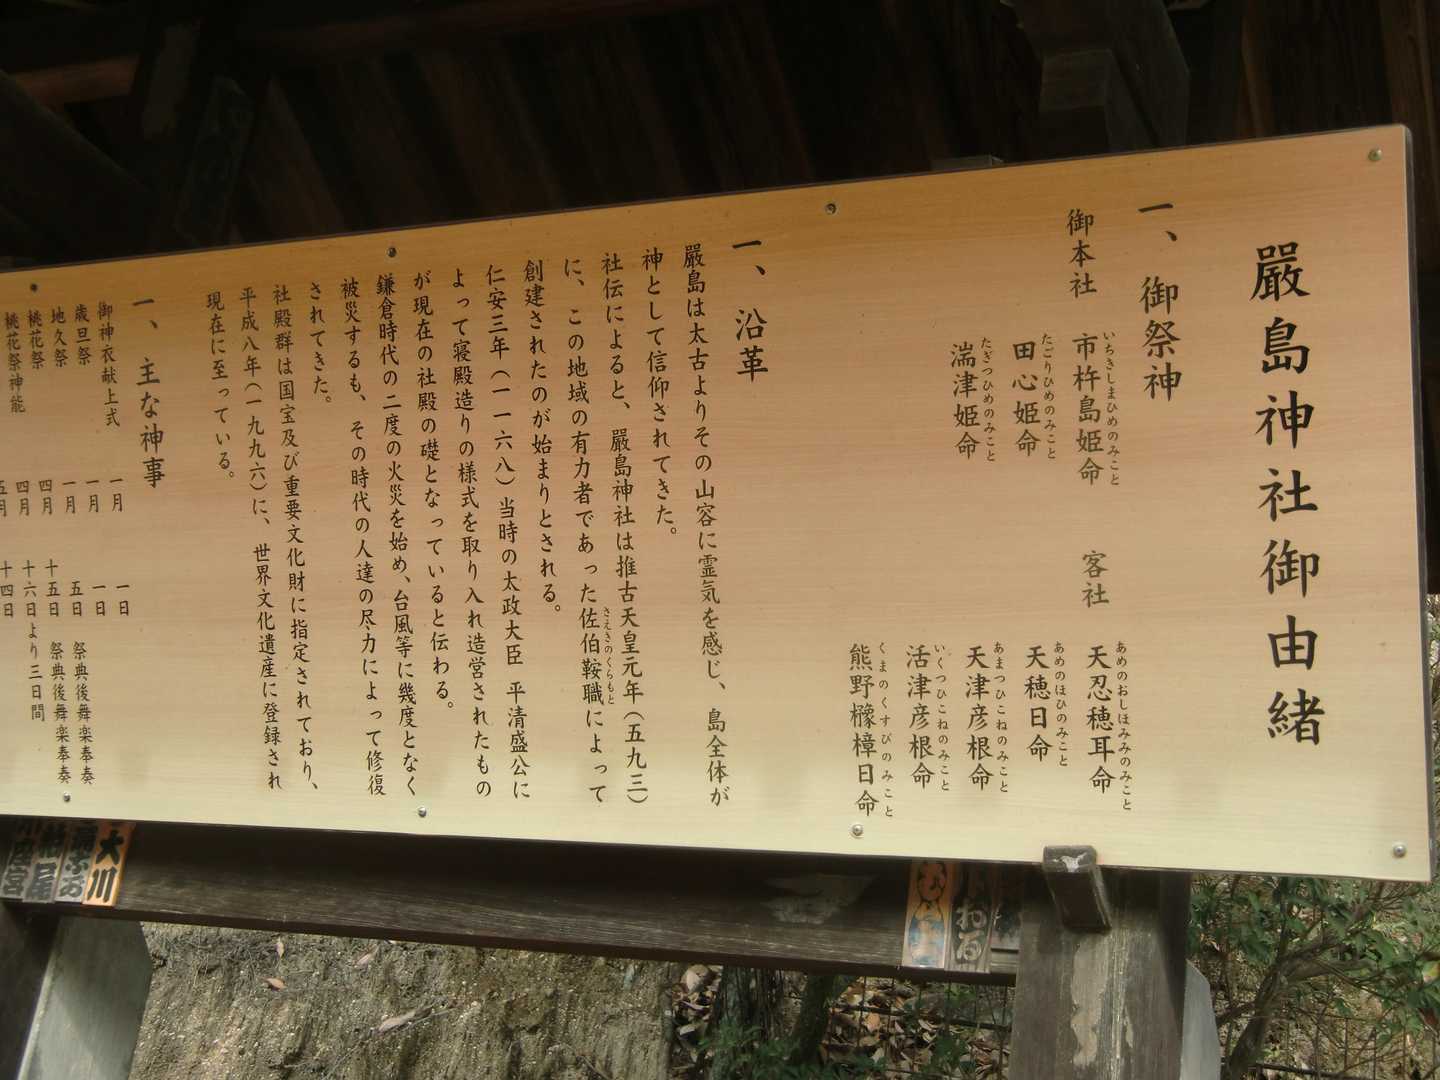 嚴島神社御由緒
一、御祭神
御本社
市杵島姫命
いちきしまひめのみこと
田心姫命
たごりひめのみこと
湍津姫命
たぎつひめのみこと
客社
天忍穂耳命
あめのおしほみみのみこと
天穂日命
あめのほひのみこと
天津彦根命
あまつひこねのみこと
活津彦根命
いくつひこねのみこと
熊野櫲樟日命
くまのくすびのみこと
一、沿革
嚴島は太古よりその山容に霊気を感じ、島全体が
神として信仰されてきた。
社伝によると、嚴島神社は推古天皇元年(五九三)
に、この地域の有力者であった佐伯鞍職によって
さえきのくらもと
創建されたのが始まりとされる。
仁安三年(一一六八)当時の太政大臣 平清盛公に
よって寝殿造りの様式を取り入れ造営されたもの
が現在の社殿の礎となっていると伝わる。
鎌倉時代の二度の火災を始め、台風等に幾度となく
被災するも、その時代の人達の尽力によって修復
されてきた。
社殿群は国宝及び重要文化財に指定されており、
平成八年(一九九六)に、世界文化遺産に登録され
現在に至っている。
一、主な神事
御神衣献上式 一月 一日
歳旦祭 一月 一日
地久祭 一月 五日 祭典後舞楽奉奏
桃花祭 四月 十五日 祭典後舞楽奉奏
桃花祭神能 四月 十六日より三日間
五月 十四日
大川